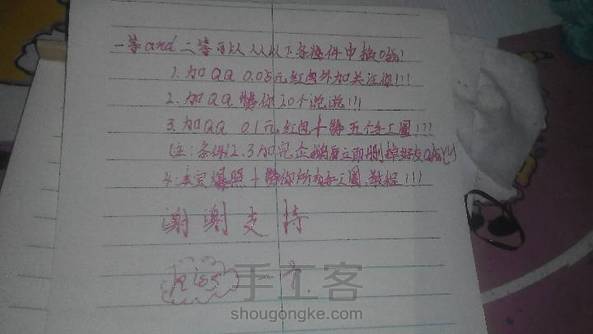 一等and二等可以从以下条件中挑0哈!
1.加QQ 0.05元红包外加关注你!!!
2.加QQ 赞你20个说说!!!
3.加QQ 0.1元红包+赞五个手工圈!!!
(注:条件1.2.3加完企鹅后立即删掉好友
4.真实爆照+赞你所有手工圈.教程!!!
谢谢支持
手工客
shougongke.com